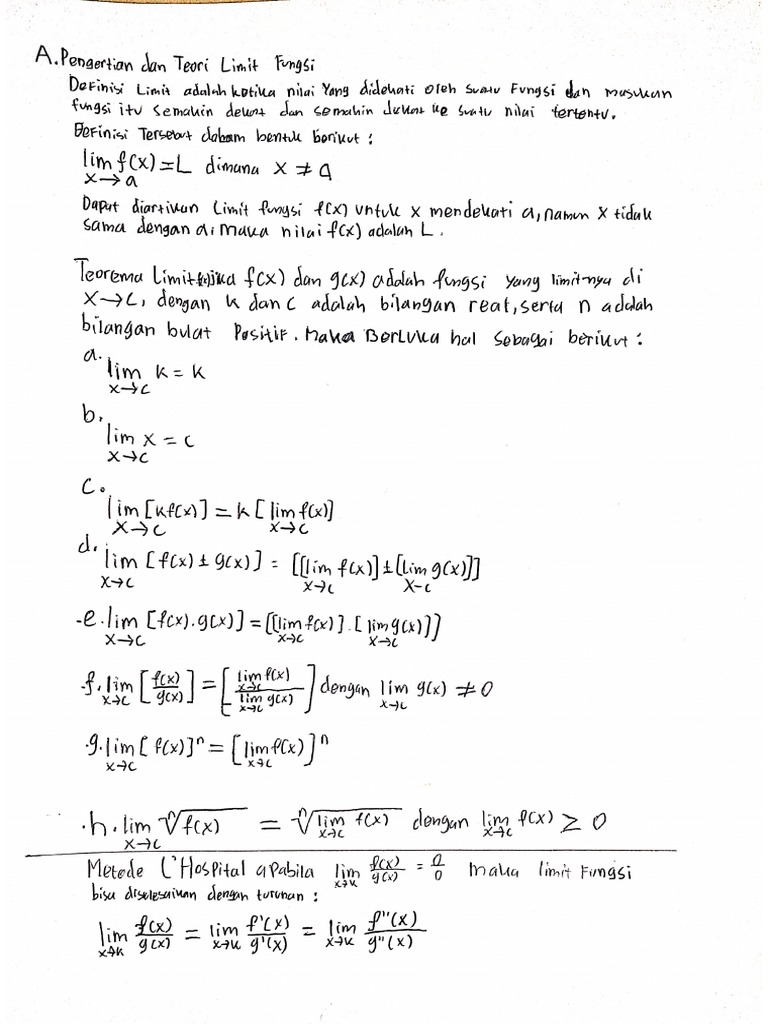 A. Pengertian dan Teori Limit Fungsi
Definisi Limit adalah ketika nilai Yang didekati oleh suatu Fungsi dan masukan
fungsi itu semakin dekat dan semakin dekat ke suatu nilai tertentu.
Definisi Tersebut dalam bentuk berikut :
lim f(x) = L dimana x ≠ a
x→a
Dapat diartikan Limit fungsi f(x) untuk x mendekati a, namun x tidak
sama dengan a, maka nilai f(x) adalah L.
Teorema Limit jika f(x) dan g(x) adalah fungsi yang limit-nya di
x→c, dengan k dan c adalah bilangan real, serta n adalah
bilangan bulat Positif. Maka Berlaku hal sebagai berikut :
a.
lim k = k
x→c
b.
lim x = c
x→c
c.
lim [kf(x)] = k [lim f(x)]
x→c x→c
d. lim [f(x) ± g(x)] = [[lim f(x)] ± [lim g(x)]]
x→c x→c x-c
-e. lim [f(x).g(x)] = [[lim f(x)].[lim g(x)]]
x→c x→c x→c
.f. lim [f(x)/g(x)] = [lim f(x) / lim g(x)] dengan lim g(x) ≠ 0
x→c x→c x→c x→c
.g. lim [f(x)]ⁿ = [lim f(x)]ⁿ
x→c x→c
.h. lim ⁿ√f(x) = ⁿ√lim f(x) dengan lim f(x) ≥ 0
x→c x→c x→c
Metode L'Hospital apabila lim f(x)/g(x) = 0/0 maka limit Fungsi
x→k
bisa diselesaikan dengan turunan :
lim f(x)/g(x) = lim f'(x)/g'(x) = lim f''(x)/g''(x)
x→k x→k x→k